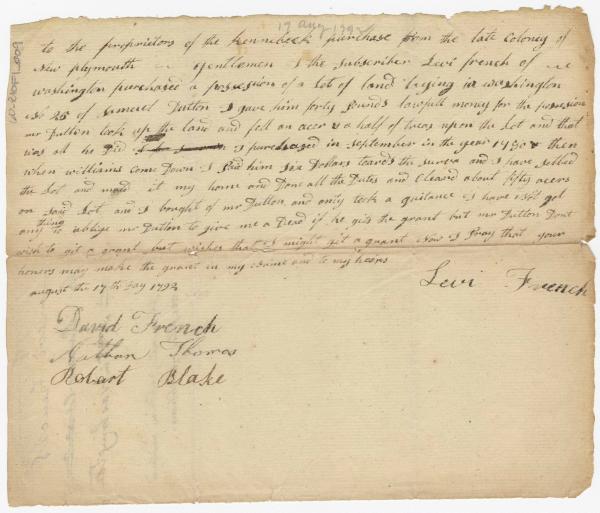 17 aug 1792
to the proprietors of the kennebeck purchase from the late Coloney of
New plymouth Gentlemen I the subscriber Levi french of
washington purchased a possession of a Lot of land lieying in washington
No 25 of Samuel Dutton I gave him forty pounds lawfull money for the possession
mr Dutton took up the land and fell an acer & a half of trees upon the Lot and that
was all he Did I purchased in September in the year 1790 & then
when williams Come Down I paid him six Dollars toards the survea and I have setled
the Lot and maid it my home and Done all the Dutes and Cleared about fifty acers
on said Lot and I bought of mr Dutton and only took a quitance I have not got
any thing to oblige mr Dutton to give me a Dead if he gits the grant but mr Dutton Dont
wish to git a grant but wishes that I might git a grant Now I pray that your
honers may make the grant in my Name and to my heirs
august the 17th Day 1792
Levi French
David French
Nathan Thomas
Robart Blake